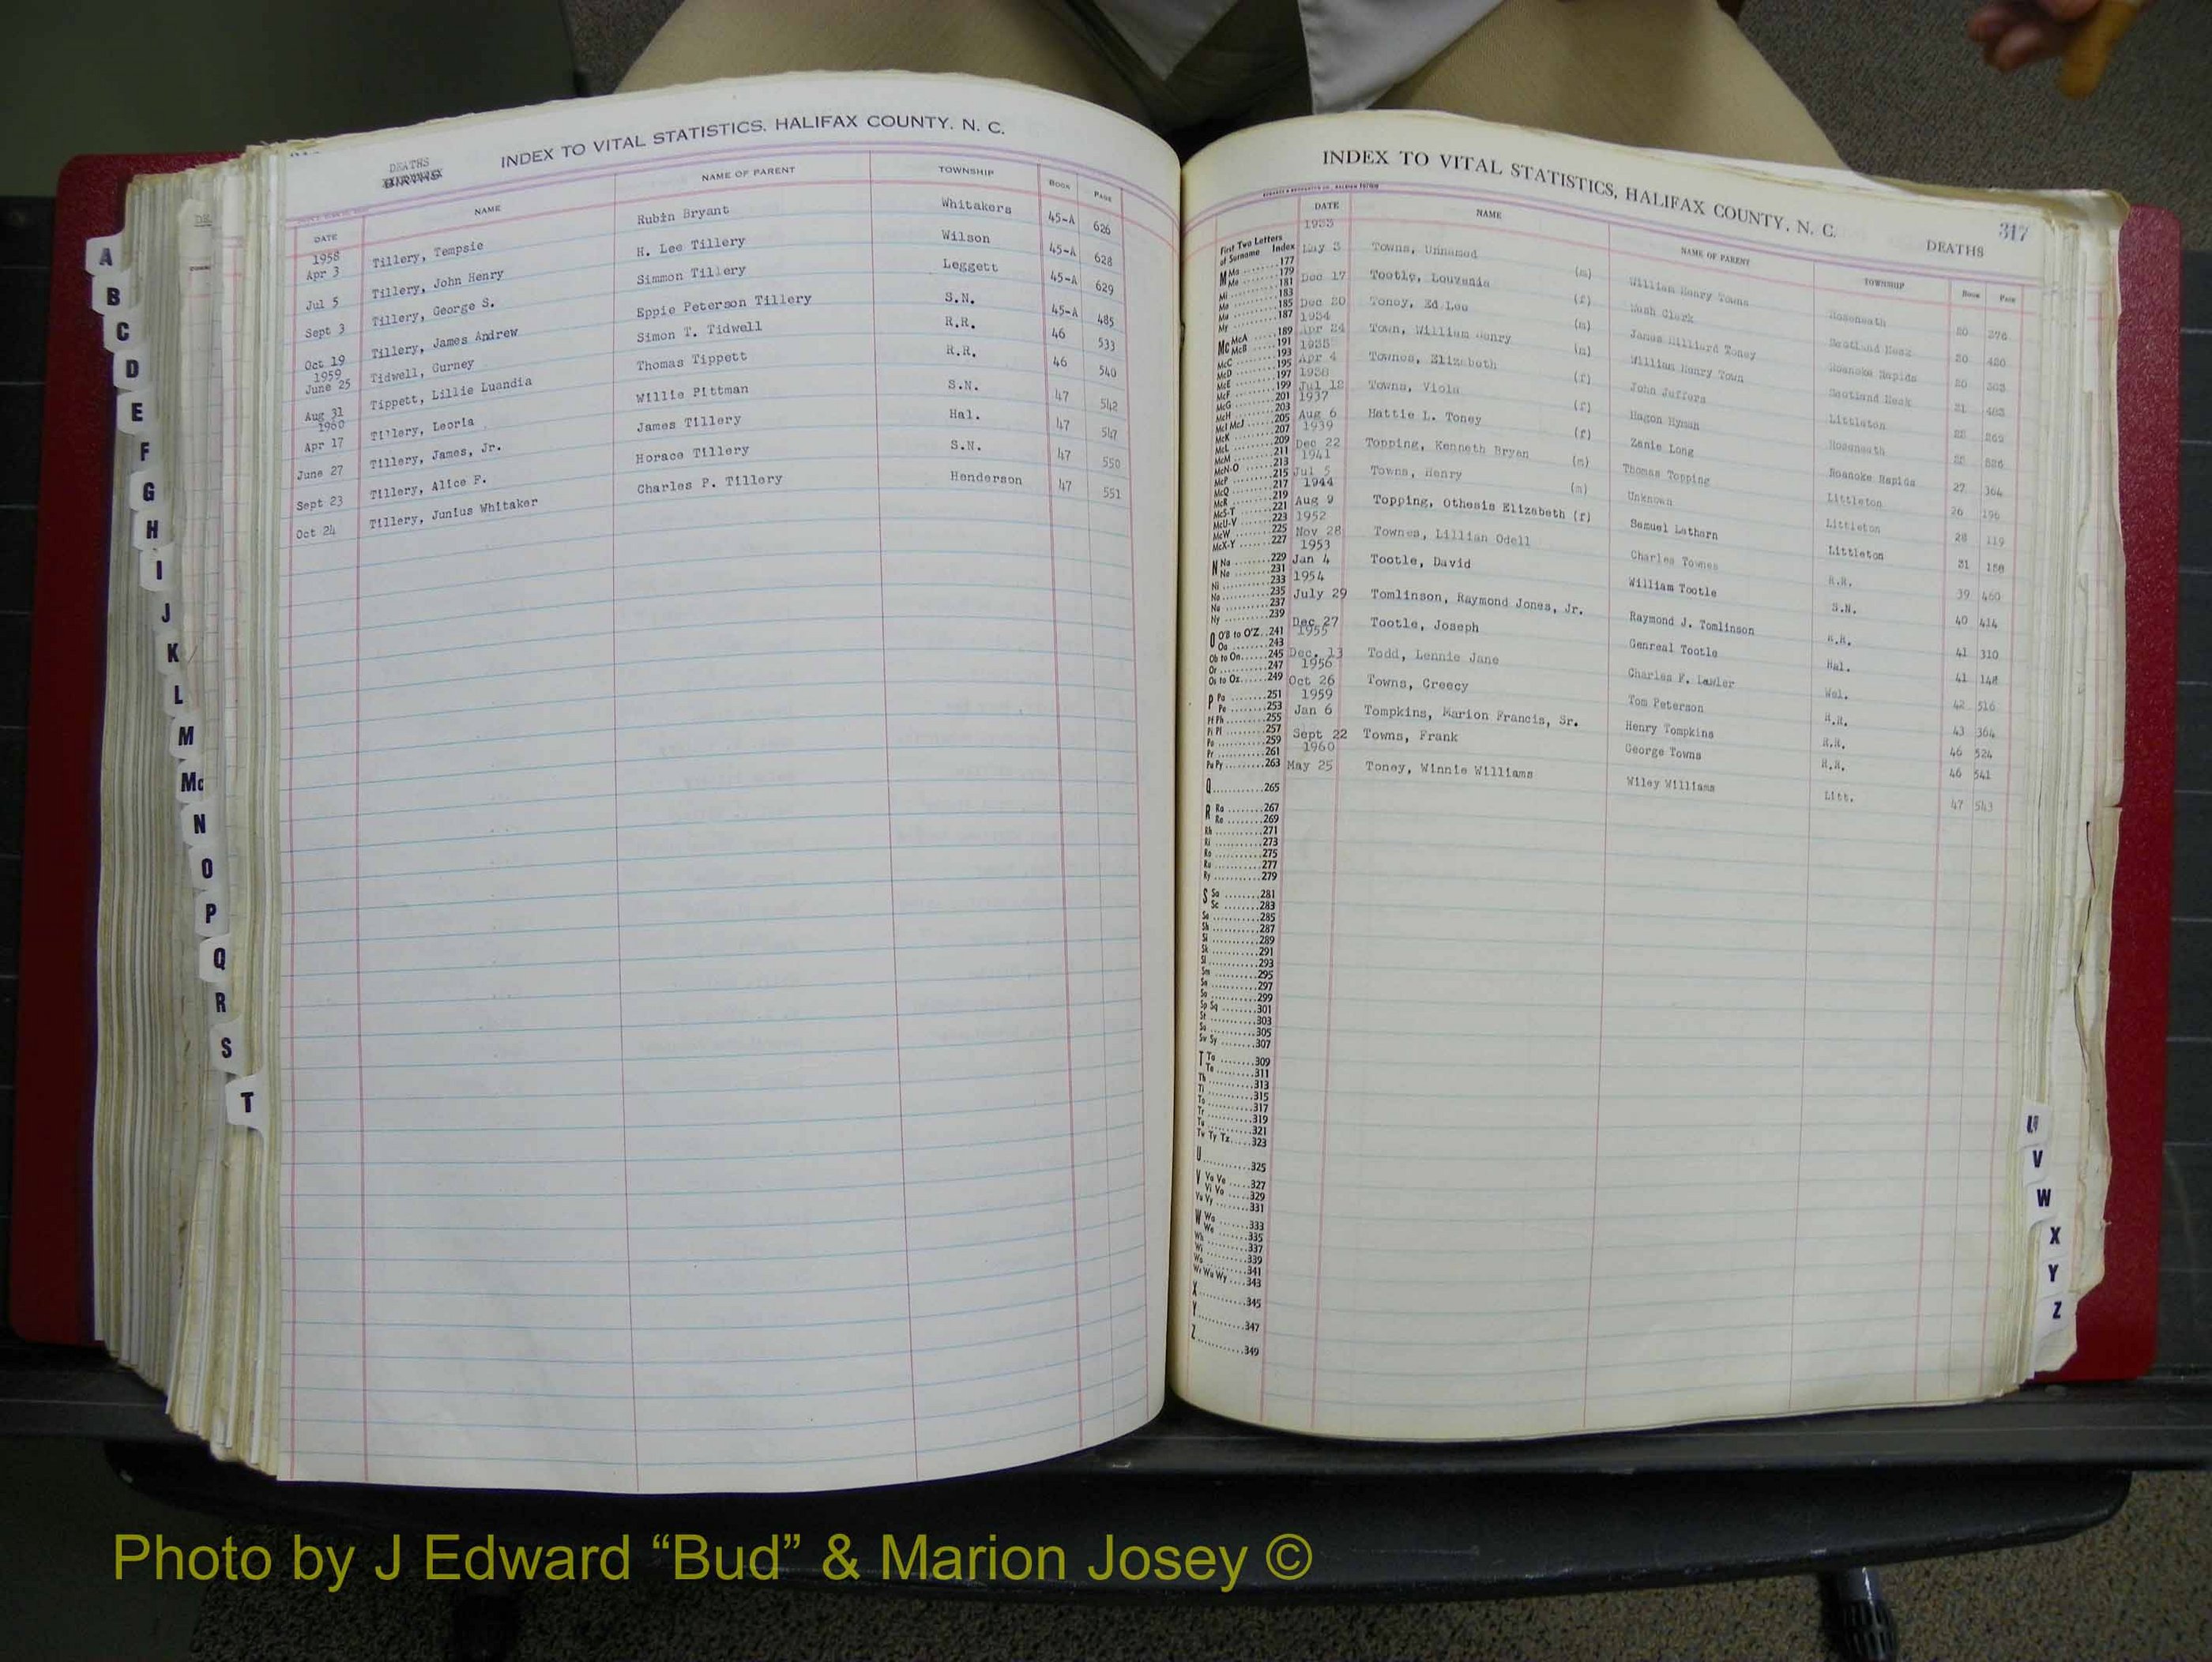 INDEX TO VITAL STATISTICS, HALIFAX COUNTY, N. C.
DEATHS
BIRTHS
DATE NAME NAME OF PARENT TOWNSHIP BOOK PAGE
1958
Apr 3 Tillery, Tempsie Rubin Bryant Whitakers 45-A 626
Jul 5 Tillery, John Henry H. Lee Tillery Wilson 45-A 628
Sept 3 Tillery, George S. Simmon Tillery Leggett 45-A 629
Oct 19 Tillery, James Andrew Eppie Peterson Tillery S.N. 45-A 485
1959
June 25 Tidwell, Gurney Simon T. Tidwell R.R. 46 533
Aug 31 Tippett, Lillie Luandia Thomas Tippett R.R. 46 540
1960
Apr 17 Tillery, Leoria Willie Pittman S.N. 47 542
June 27 Tillery, James, Jr. James Tillery Hal. 47 547
Sept 23 Tillery, Alice F. Horace Tillery S.N. 47 550
Oct 24 Tillery, Junius Whitaker Charles P. Tillery Henderson 47 551
A
B
C
D
E
F
G
H
I
J
K
L
M
Mc
N
O
P
Q
R
S
T
INDEX TO VITAL STATISTICS, HALIFAX COUNTY, N. C.
317
DEATHS
DATE NAME NAME OF PARENT TOWNSHIP BOOK PAGE
1933
May 3 Towns, Unnamed (m) William Henry Towns Roseneath 20 376
Dec 17 Tootle, Louvenia (f) Mush Clark Scotland Neck 20 486
Dec 20 Toney, Ed Lee (m) James Hilliard Toney Roanoke Rapids 20
1934
Apr 24 Town, William Henry (m) William Henry Town Scotland Neck 21 483
1935
Apr 4 Townes, Elizabeth (f) John Juffers Littleton
1936
Jul 18 Towns, Viola (f) Hagon Hyman Roseneath
1937
Aug 6 Hattie L. Toney (f) Zanie Long Roanoke Rapids 27 364
1939
Dec 22 Topping, Kenneth Bryan (m) Thomas Topping Littleton 26 196
1941
Jul 5 Towns, Henry (m) Unknown Littleton 28 119
1944
Aug 9 Topping, Othesis Elizabeth (f) Samuel Latharn Littleton 31 158
1952
Nov 28 Townes, Lillian Odell Charles Townes R.R. 39 460
1953
Jan 4 Tootle, David William Tootle S.N. 40 414
1954
July 29 Tomlinson, Raymond Jones, Jr. Raymond J. Tomlinson R.R. 41 310
Dec 27 Tootle, Joseph Genreal Tootle Hal. 41 148
1955
Dec. 13 Todd, Lennie Jane Charles F. Lawler Wel. 42 516
1956
Oct 26 Towns, Creecy Tom Peterson R.R. 43 364
1959
Jan 6 Tompkins, Marion Francis, Sr. Henry Tompkins R.R. 46 524
Sept 22 Towns, Frank George Towns R.R. 46 541
1960
May 25 Toney, Winnie Williams Wiley Williams Litt. 47 543
First Two Letters
of Surname Index
M Ma 177
179
Me 181
Mi 183
Mo 185
Mu 187
My
Mc McA 189
McB 191
McC 193
McD 195
McE 197
McF 199
McG 201
McH 203
McI McJ 205
McK 207
McL 209
McM 211
McN-O 213
McP 215
McQ 217
McR 219
McS-T 221
McU-V 223
McW 225
McX-Y 227
N Na 229
Ne 231
Ni 233
No 235
Nu 237
Ny 239
O O'B to O'Z 241
Oa 243
Ob to On 245
Or 247
Os to Oz 249
P Pa 251
Pe 253
Pf Ph 255
Pi Pl 257
Po 259
Pr 261
Pu Py 263
Q 265
R Ra 267
Re 269
Rh 271
Ri 273
Ro 275
Ru 277
Ry 279
S Sa 281
Sc 283
Se 285
Sh 287
Si 289
Sk 291
Sl 293
Sm 295
Sn 297
So 299
Sp Sq 301
St 303
Su 305
Sw Sy 307
T Ta 309
Te 311
Th 313
Ti 315
To 317
Tr 319
Tu 321
Tw Ty Tz 323
U 325
V Va Ve 327
Vi Vo 329
Vu Vy 331
W Wa 333
We 335
Wh 337
Wi 339
Wo 341
Wr Wu Wy 343
X 345
Y 347
Z 349
U
V
W
X
Y
Z
Photo by J Edward “Bud” & Marion Josey ©